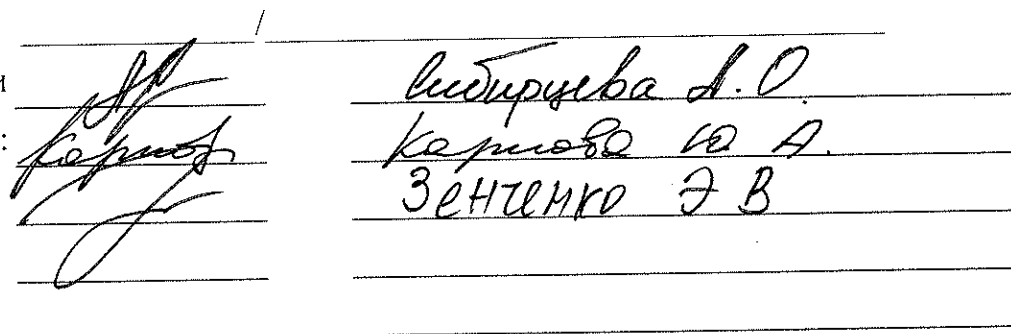 /
и Сибирцева А. О.
: Карпова Ю А.
Зенченко Э В